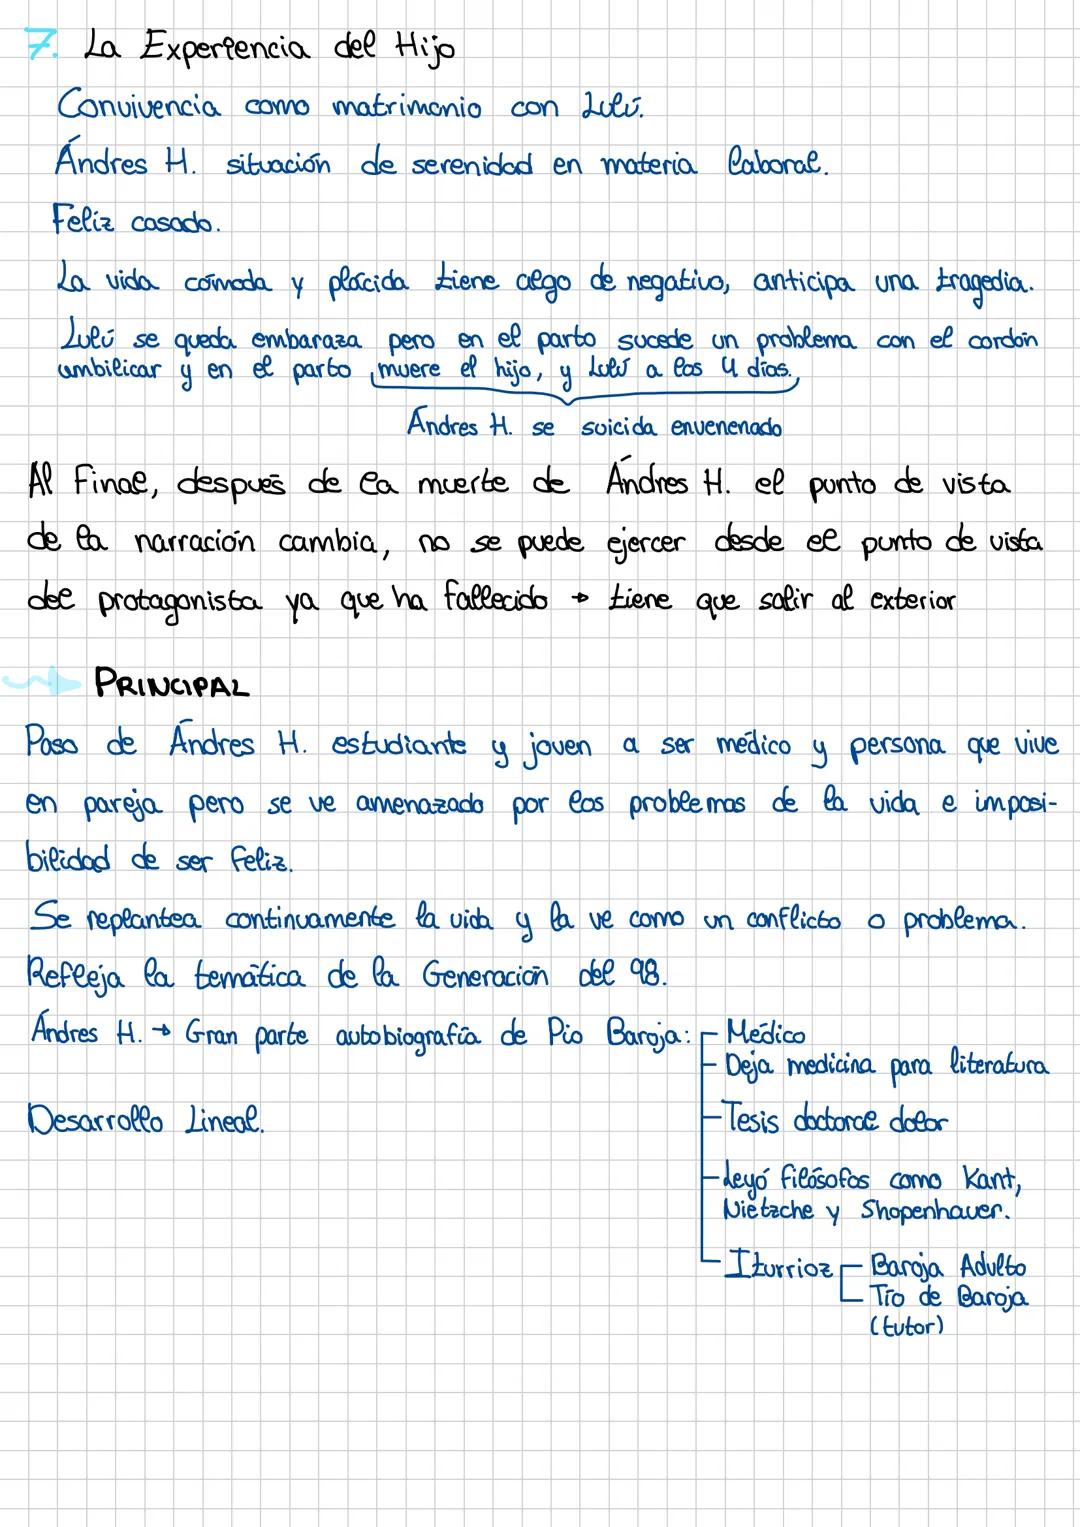 7. La Experiencia del Hijo
Convivencia como matrimonio con Lulú.
Ándres H. situación de serenidad en materia laboral.
Feliz casado.
La vida cómoda y plácida tiene algo de negativo, anticipa una tragedia.
Lulú se queda embaraza pero en el parto sucede un problema con el cordón
umbilicar y en el parto muere el hijo, y Lulú a los 4 días.
Ándres H. se suicida envenenado
Al Final, después de la muerte de Ándres H. el punto de vista
de la narración cambia, no se puede ejercer desde el punto de vista
del protagonista ya que ha fallecido → tiene que salir al exterior
PRINCIPAL
Paso de Ándres H. estudiante y joven a ser médico y persona que vive
en pareja pero se ve amenazado por los problemas de la vida e imposi-
bilidad de ser feliz.
Se replantea continuamente la vida y la ve como un conflicto o problema.
Refleja la temática de la Generación del 98.
Ándres H. → Gran parte autobiografía de Pío Baroja:
Médico
Deja medicina para literatura
Desarrollo Lineal.
Tesis doctoral dolor
Leyó filósofos como Kant,
Nietzche y Shopenhauer.
Iturrioz
Baroja Adulto
Tío de Baroja
(tutor)